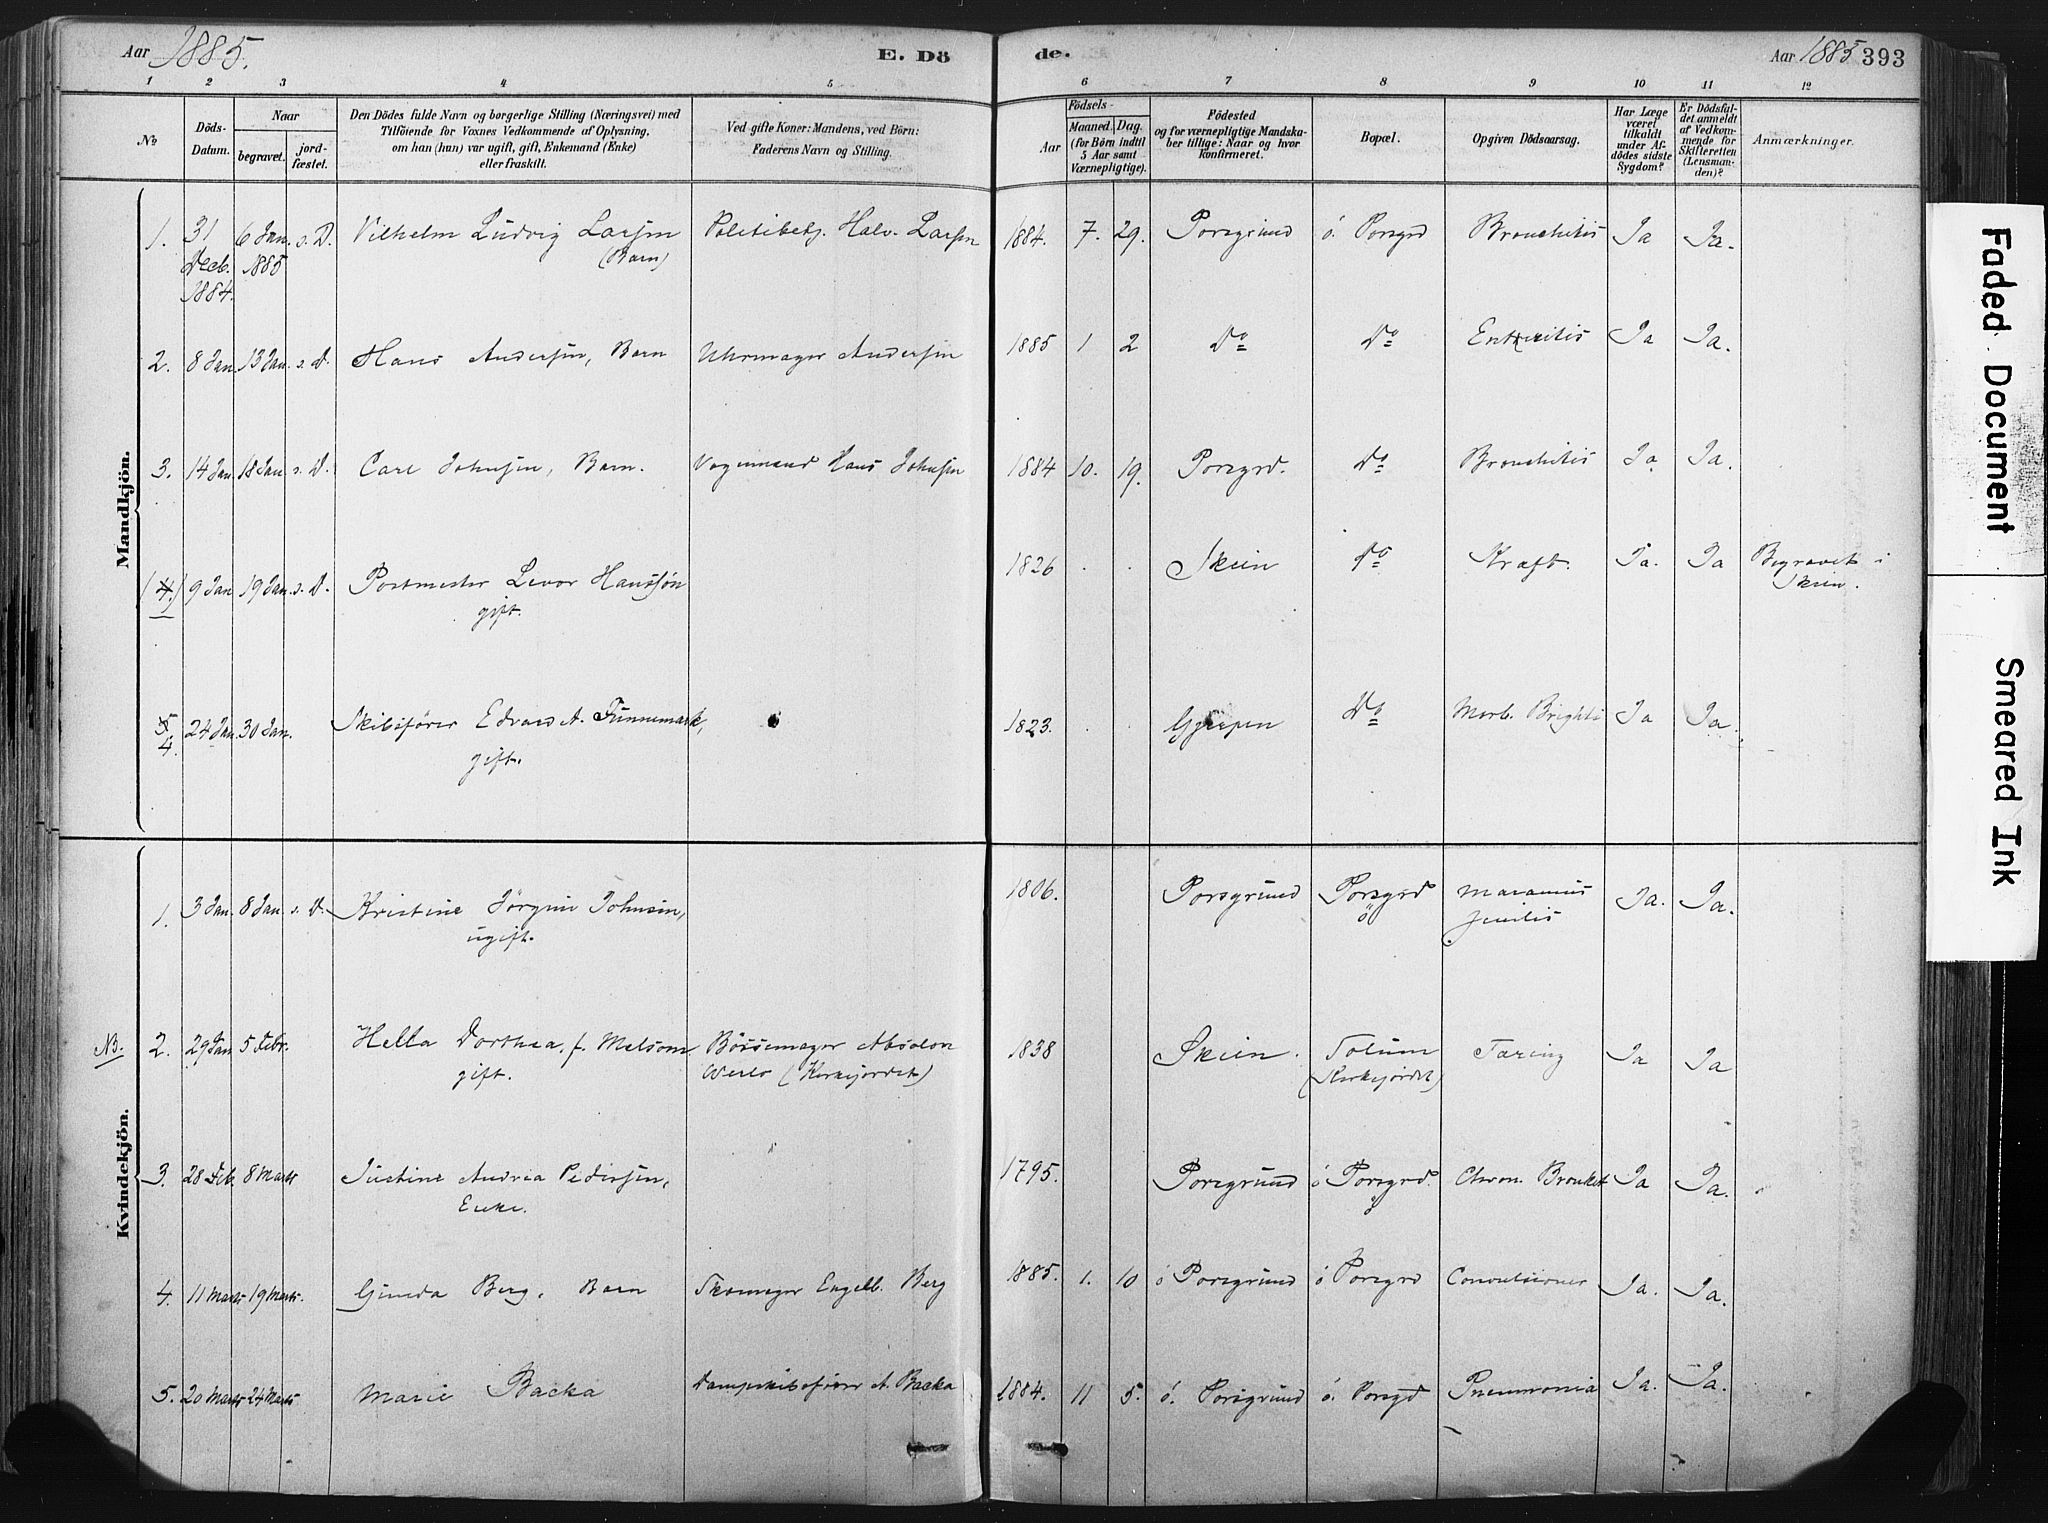 Aar 1885.
E. Dö
de.
Aar 1885 393
1 2 3 4 5 6 7 8 9 10 11 12
No
Döds-Datum.
Naar
begravet.
jord-fæstet.
Den Dödes fulde Navn og borgerlige Stilling (Næringsvei) med
Tilföiende for Voxnes Vedkommende af Oplysning,
om han (hun) var ugift, gift, Enkemand (Enke)
eller fraskilt.
Ved gifte Koner: Mandens, ved Börn:
Faderens Navn og Stilling.
Födsels-
Aar
Maaned. Dag.
(for Börn indtil
5 Aar samt
Værnepligtige).
Födested
og for værnepligtige Mandska-
ber tillige: Naar og hvor
konfirmeret.
Bopæl.
Opgiven Dödsaarsag.
Har Læge
været
tilkaldt
under Af-
dödes sidste
Sygdom?
Er Dödsfal-
det anmeldt
af Vedkom-
mende for
Skifteretten
(Lensman-
den)?
Anmærkninger.
Mandkjön.
1. 31 Decb. 1884. 6 Jan. 1885 s. D. Vilhelm Ludvig Larsen (Barn) Politibetj. Halv. Larsen 1884. 7. 29. Porsgrund ö. Porsgrd Bronchitis Ja Ja.
2. 8 Jan 13 Jan. s. D. Hans Andersen, Barn Uhrmager Andersen 1885 1 2 Do Do Enteritis Ja Ja.
3. 14 Jan 18 Jan s. D. Carl Johnsen, Barn. Vognmand Hans Johnsen 1884 10. 19. Porsgrd. Do Bronchitis Ja Ja.
(4.) 9 Jan 19 Jan s. D. Postmester Levor Hanssøn gift. 1826 . . Skien Do Kræft. Ja. Ja Begravet i Skien.
5 4. 24 Jan. 30 Jan. Skibsfører Edvard A. Funnemark, gift. 1823. . . Gjerpen Do Morb. Brightii Ja Ja.
Kvindekjön.
1. 3 Jan. 8 Jan. s. D. Kristine Jørgine Johnsen, ugift. 1806. Porsgrund Porsgrd ö Marasmus senilis Ja. Ja.
NB. 2. 29 Jan 5 Febr. Hella Dorthea, f. Melsom gift. Bøssemager Absalon Werlo (Kirkejordet) 1838 Skien. Solum (Kirkejordet) Tæring Ja Ja
3. 28 Feb. 8 Marts Justine Andrea Pedersen, Enke. 1795. Porsgrund ö Porsgrd. Chron. Bronkit Ja Ja.
4. 11 Marts 19 Marts. Gunda Berg, Barn Skomager Engelb. Berg 1885. 1. 10 ö Porsgrund ö Porsgrd Convulsioner Ja. Ja.
5. 20 Marts 24 Marts Marie Backa Dampskibsfører A. Backa 1884. 11 5. ö. Porsgrund ö. Porsgd Pneumonia Ja. Ja.
Faded Document
Smeared Ink